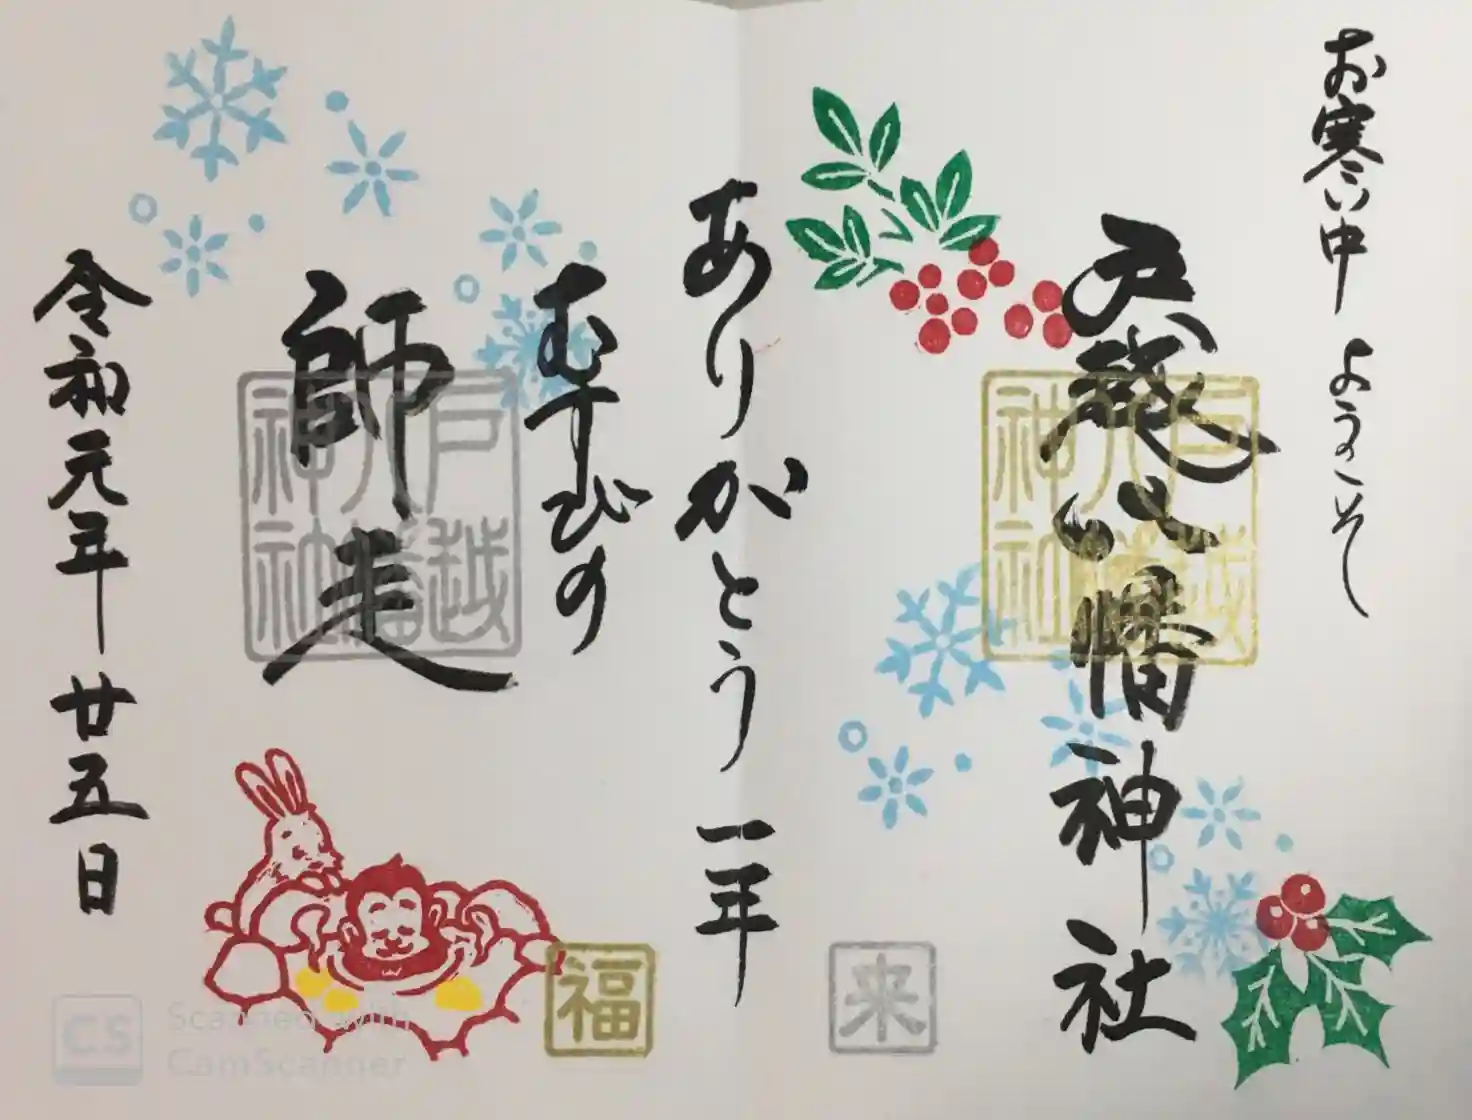 お寒い中 ようこそ
戸越八幡神社
ありがとう 一年
むすびの
師走
令和元年 廿五日
戸越八幡神社
戸越八幡神社
来
福
CS
Scanned with
CamScanner